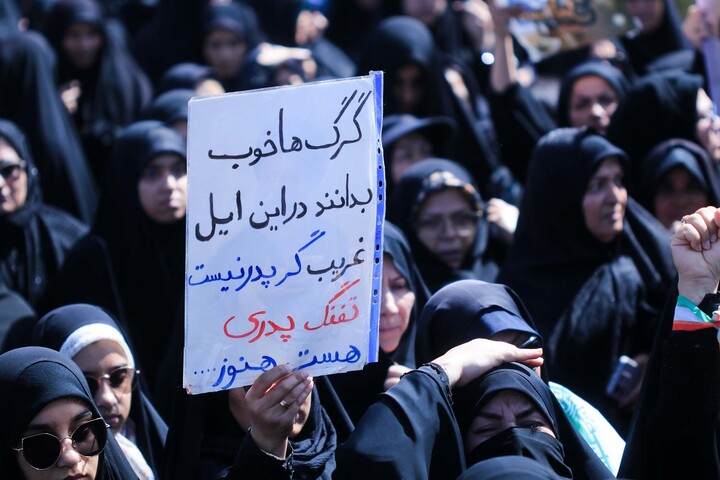 گرگ ها خوب
بدانند در این ایل
غریب گر پدر نیست
تفنگ پدری
هست هنوز....